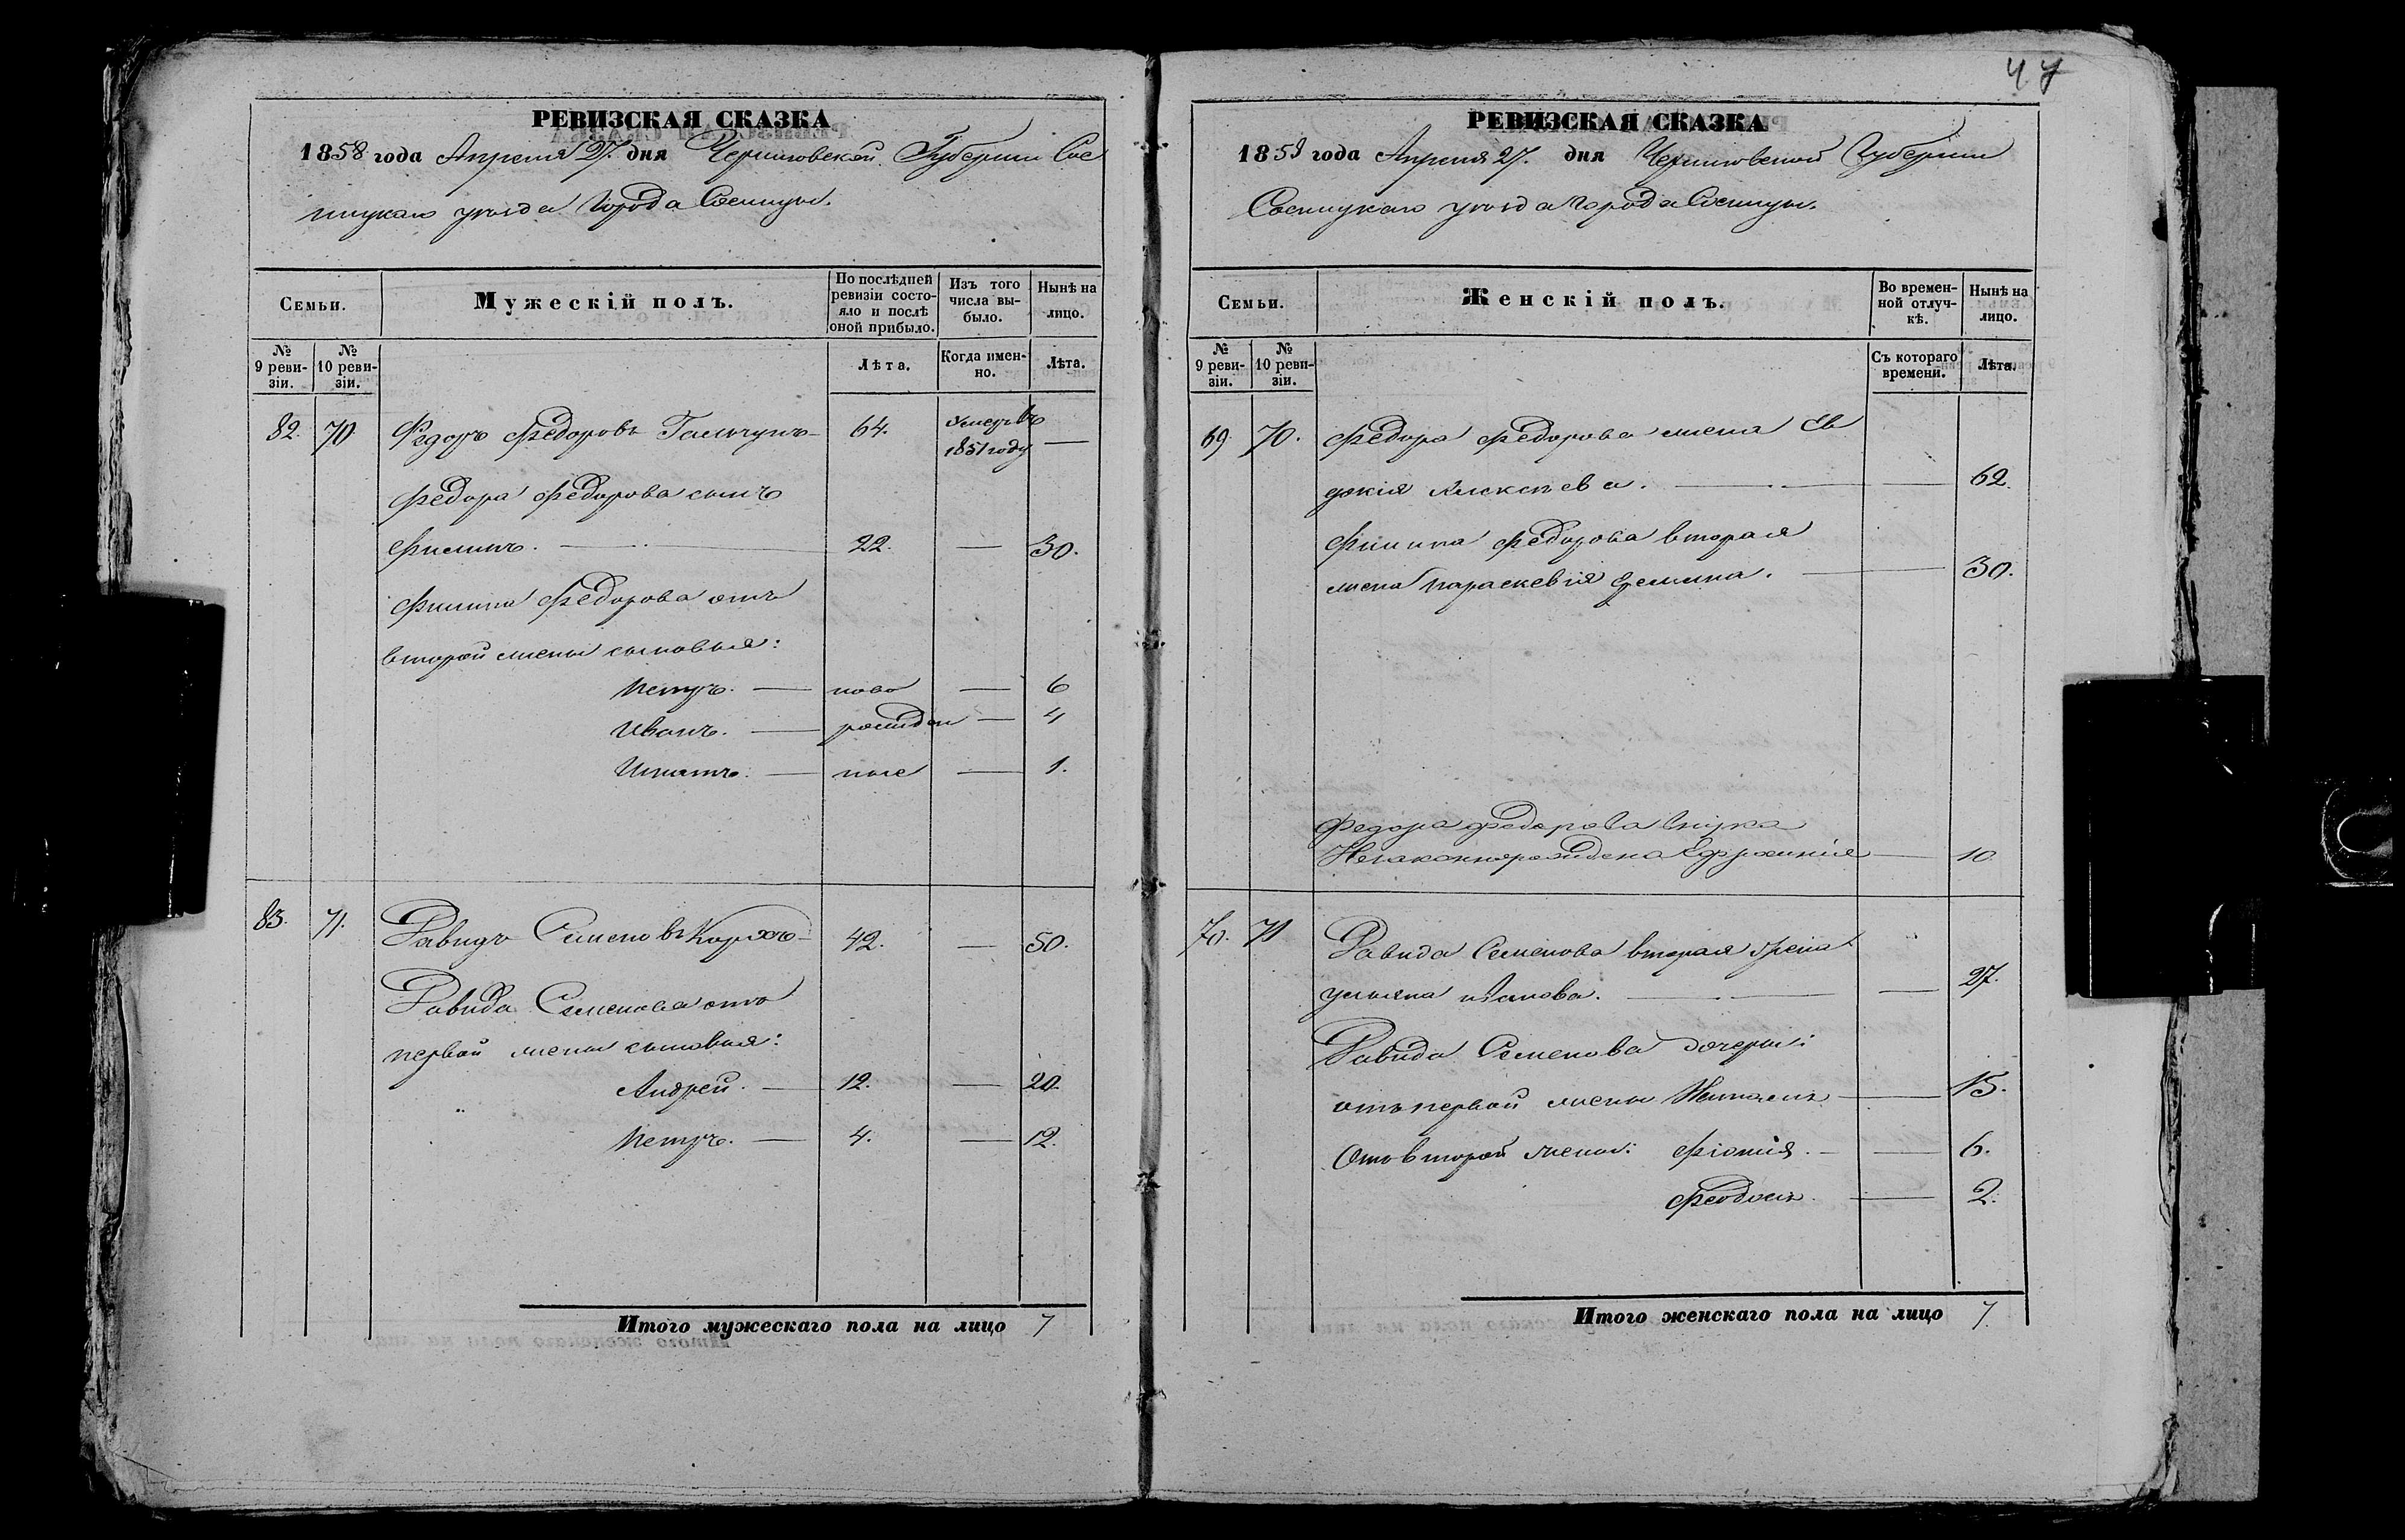 47
РЕВИЗСКАЯ СКАЗКА
1858 года Апреля 27. дня Черниговской Губернии Сос
ницкаго уезда Города Сосницы.
Семьи.
Мужескій полъ.
По послѣдней ревизіи состояло и послѣ оной прибыло.
Изъ того числа выбыло.
Нынѣ на лицо.
№ 9 ревизіи.
№ 10 ревизіи.
Лѣта.
Когда именно.
Лѣта.
82. 70. Федоръ Федоровъ 64. Умеръ въ 1851 году —
Федора Федорова сынъ
Филипъ. — 22. — 30.
Филипа Федорова отъ
второй жены сыновья:
Петръ. — ново — 6
Иванъ. — рожден — 4
Игнатъ. — ные — 1.
83. 71. Давидъ Семеновъ Коржъ 42. — 50.
Давида Семенова отъ
первой жены сыновья:
Андрей. — 12. — 20.
Петръ. — 4. — 12.
Итого мужескаго пола на лицо 7
РЕВИЗСКАЯ СКАЗКА
1858 года Апреля 27. дня Черниговской Губернии
Сосницкаго уезда города Сосницы.
Семьи.
Женскій полъ.
Во временной отлучкѣ.
Нынѣ на лицо.
№ 9 ревизіи.
№ 10 ревизіи.
Съ котораго времени.
Лѣта.
69. 70. Федора Федорова жена Ев
докія Алексѣева. — — 62.
Филипа Федорова вторая
жена Параскевія — — 30.
Федора Федорова внука
Незаконнорождена Ефросинія — 10
70. 71 Давида Семенова вторая жена
Ульяна — — 27.
Давида Семенова дочери:
отъ первой жены Наталья — 15.
Отъ второй жены: Фіонія. — 6.
Феодосья. — 2.
Итого женскаго пола на лицо 7